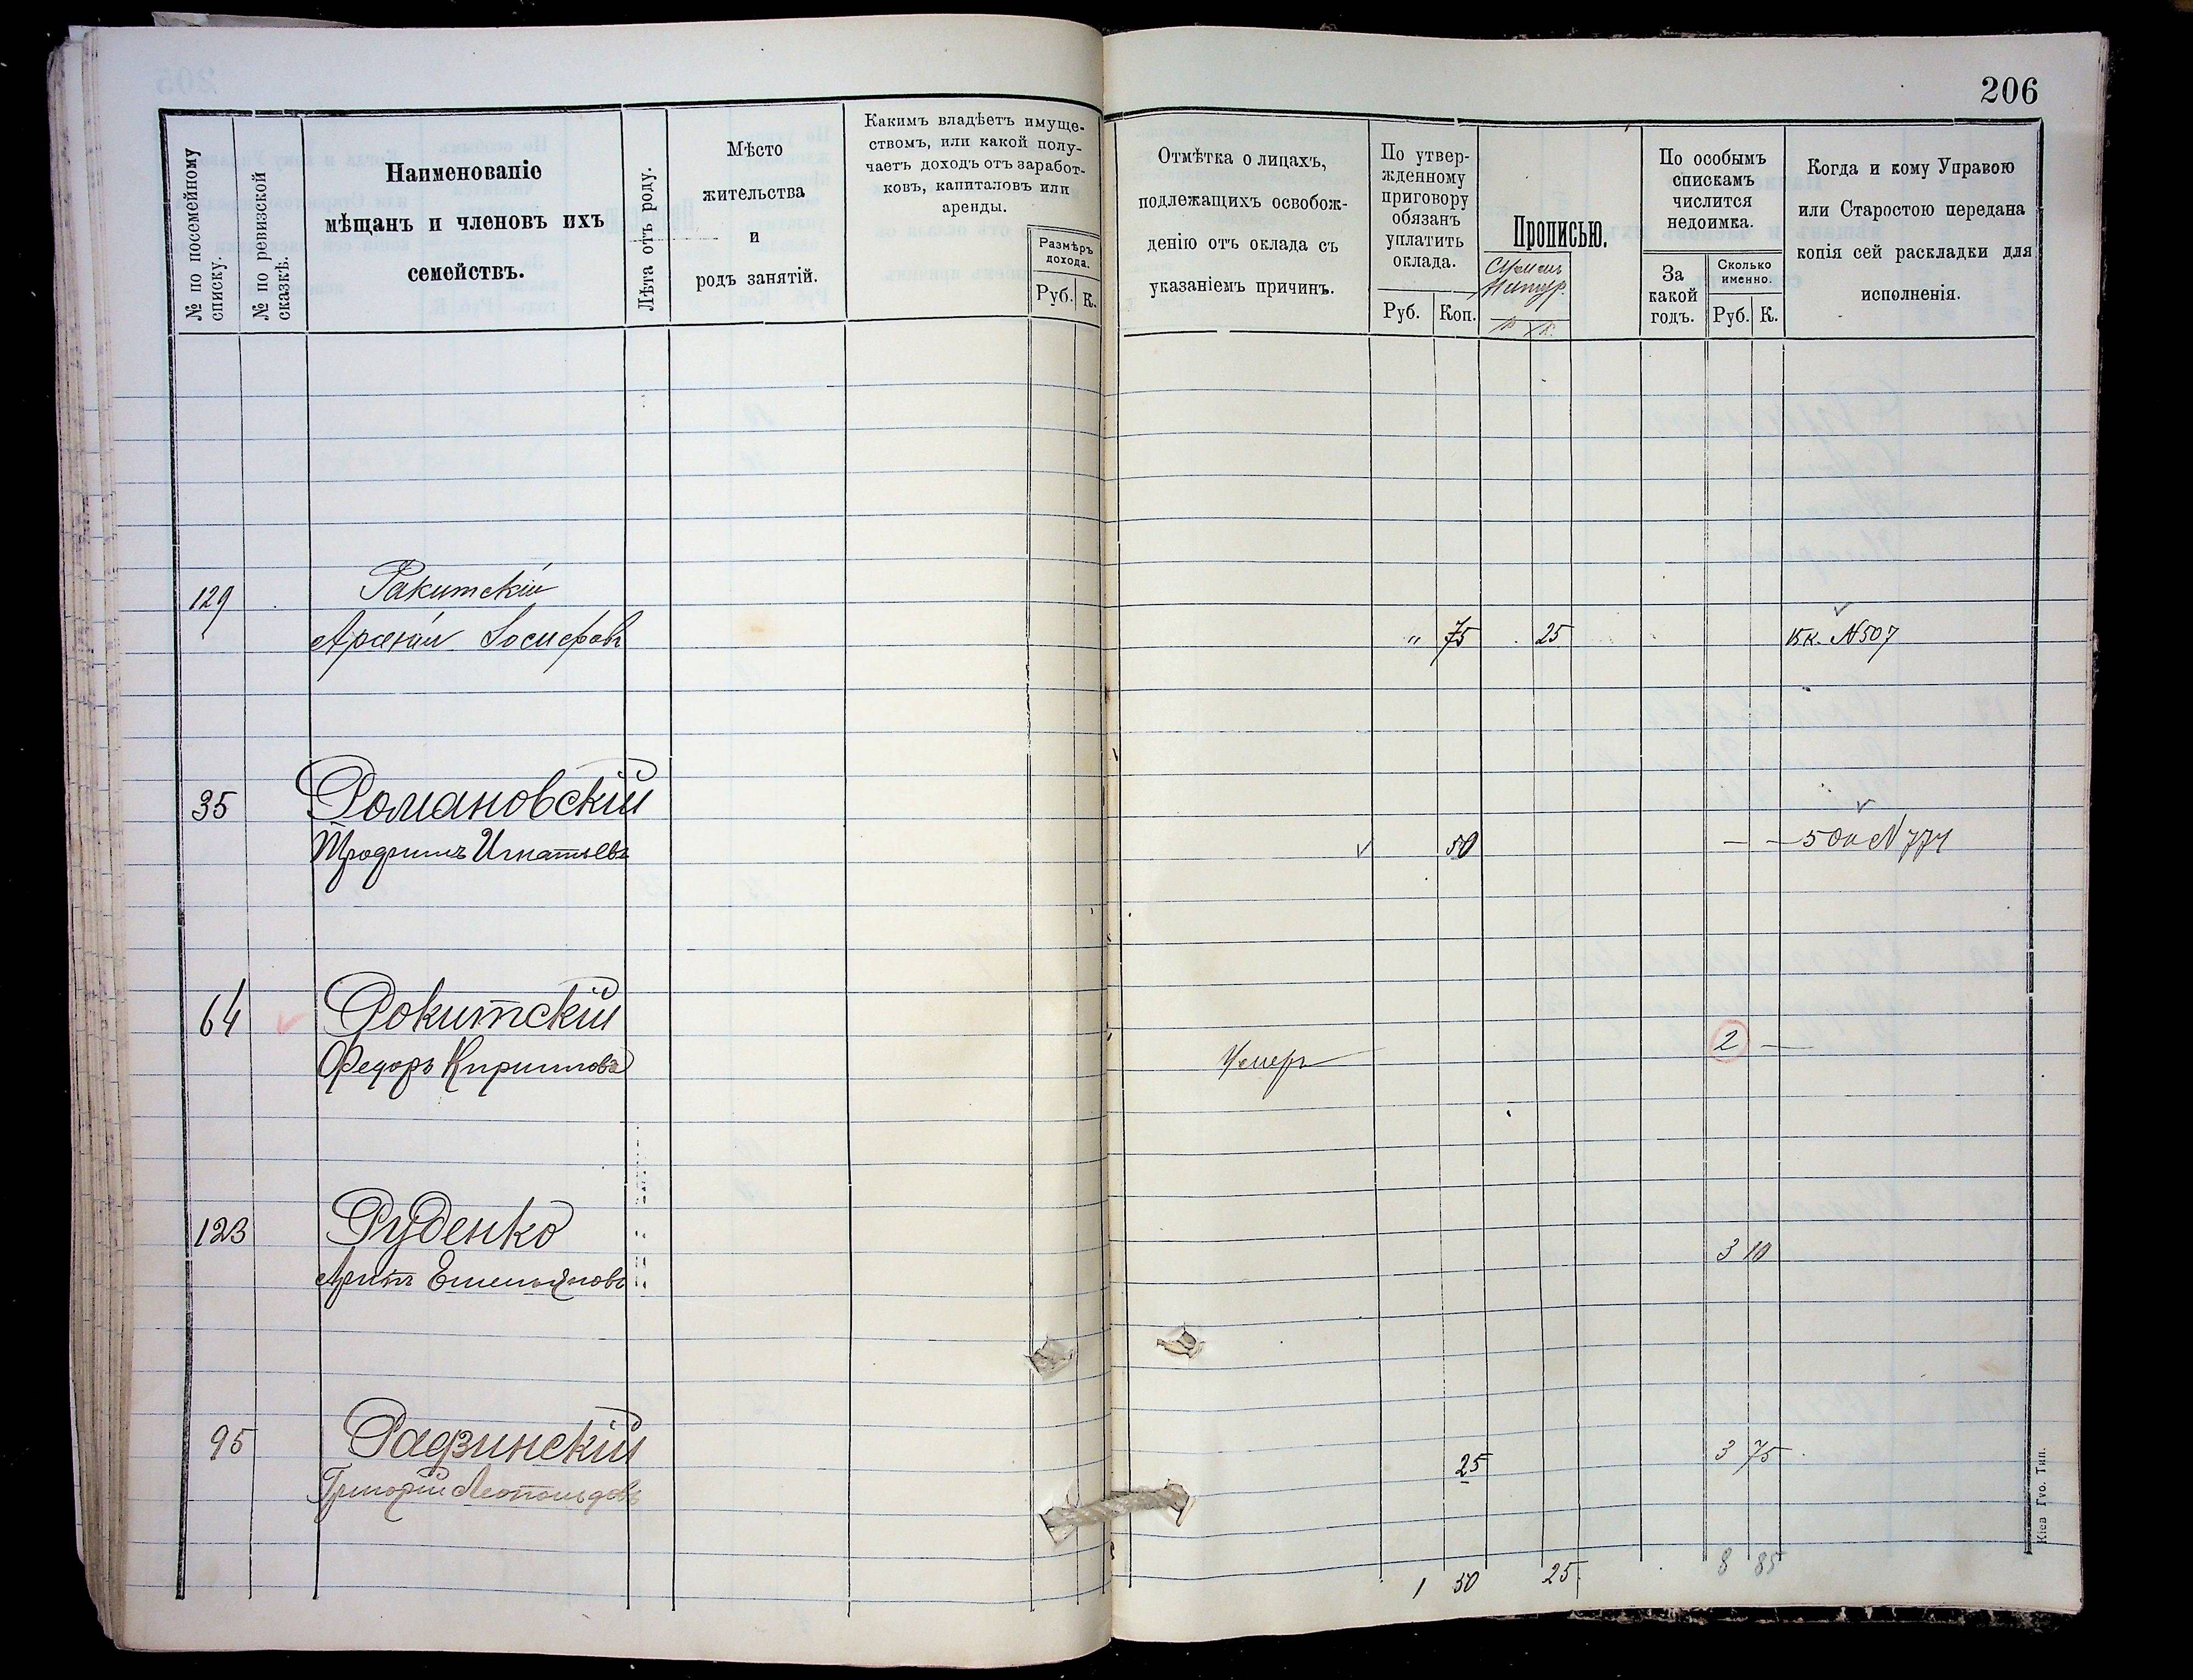 206
№ по посемейному
списку.
№ по ревизской
сказкѣ.
Наименованіе
мѣщанъ и членовъ ихъ
семействъ.
Лѣта отъ роду.
Мѣсто
жительства
и
родъ занятій.
Какимъ владѣетъ имуще-
ствомъ, или какой полу-
чаетъ доходъ отъ заработ-
ковъ, капиталовъ или
аренды.
Размѣръ
дохода.
Руб. К.
Отмѣтка о лицахъ,
подлежащихъ освобож-
денію отъ оклада съ
указаніемъ причинъ.
По утвер-
жденному
приговору
обязанъ
уплатить
оклада.
Руб. Коп.
Прописью.
р к.
По особымъ
спискамъ
числится
недоимка.
За
какой
годъ.
Сколько
именно.
Руб. К.
Когда и кому Управою
или Старостою передана
копія сей раскладки для
исполненія.
129 Ракитскій
Арсеній Іосифовъ " 75 25 к. № 507
35 Романовскій
Трофимъ Игнатьевъ 50 — — 50к № 774
64 Рокитскій
Федоръ Кириловъ Умеръ 2 —
123 Руденко
Архипъ Емельяновъ 3 10
95 Радзинскій
Григорій Леопольдовъ 25 3 75
1 50 25 8 85
Кіев Гуо. Тип.